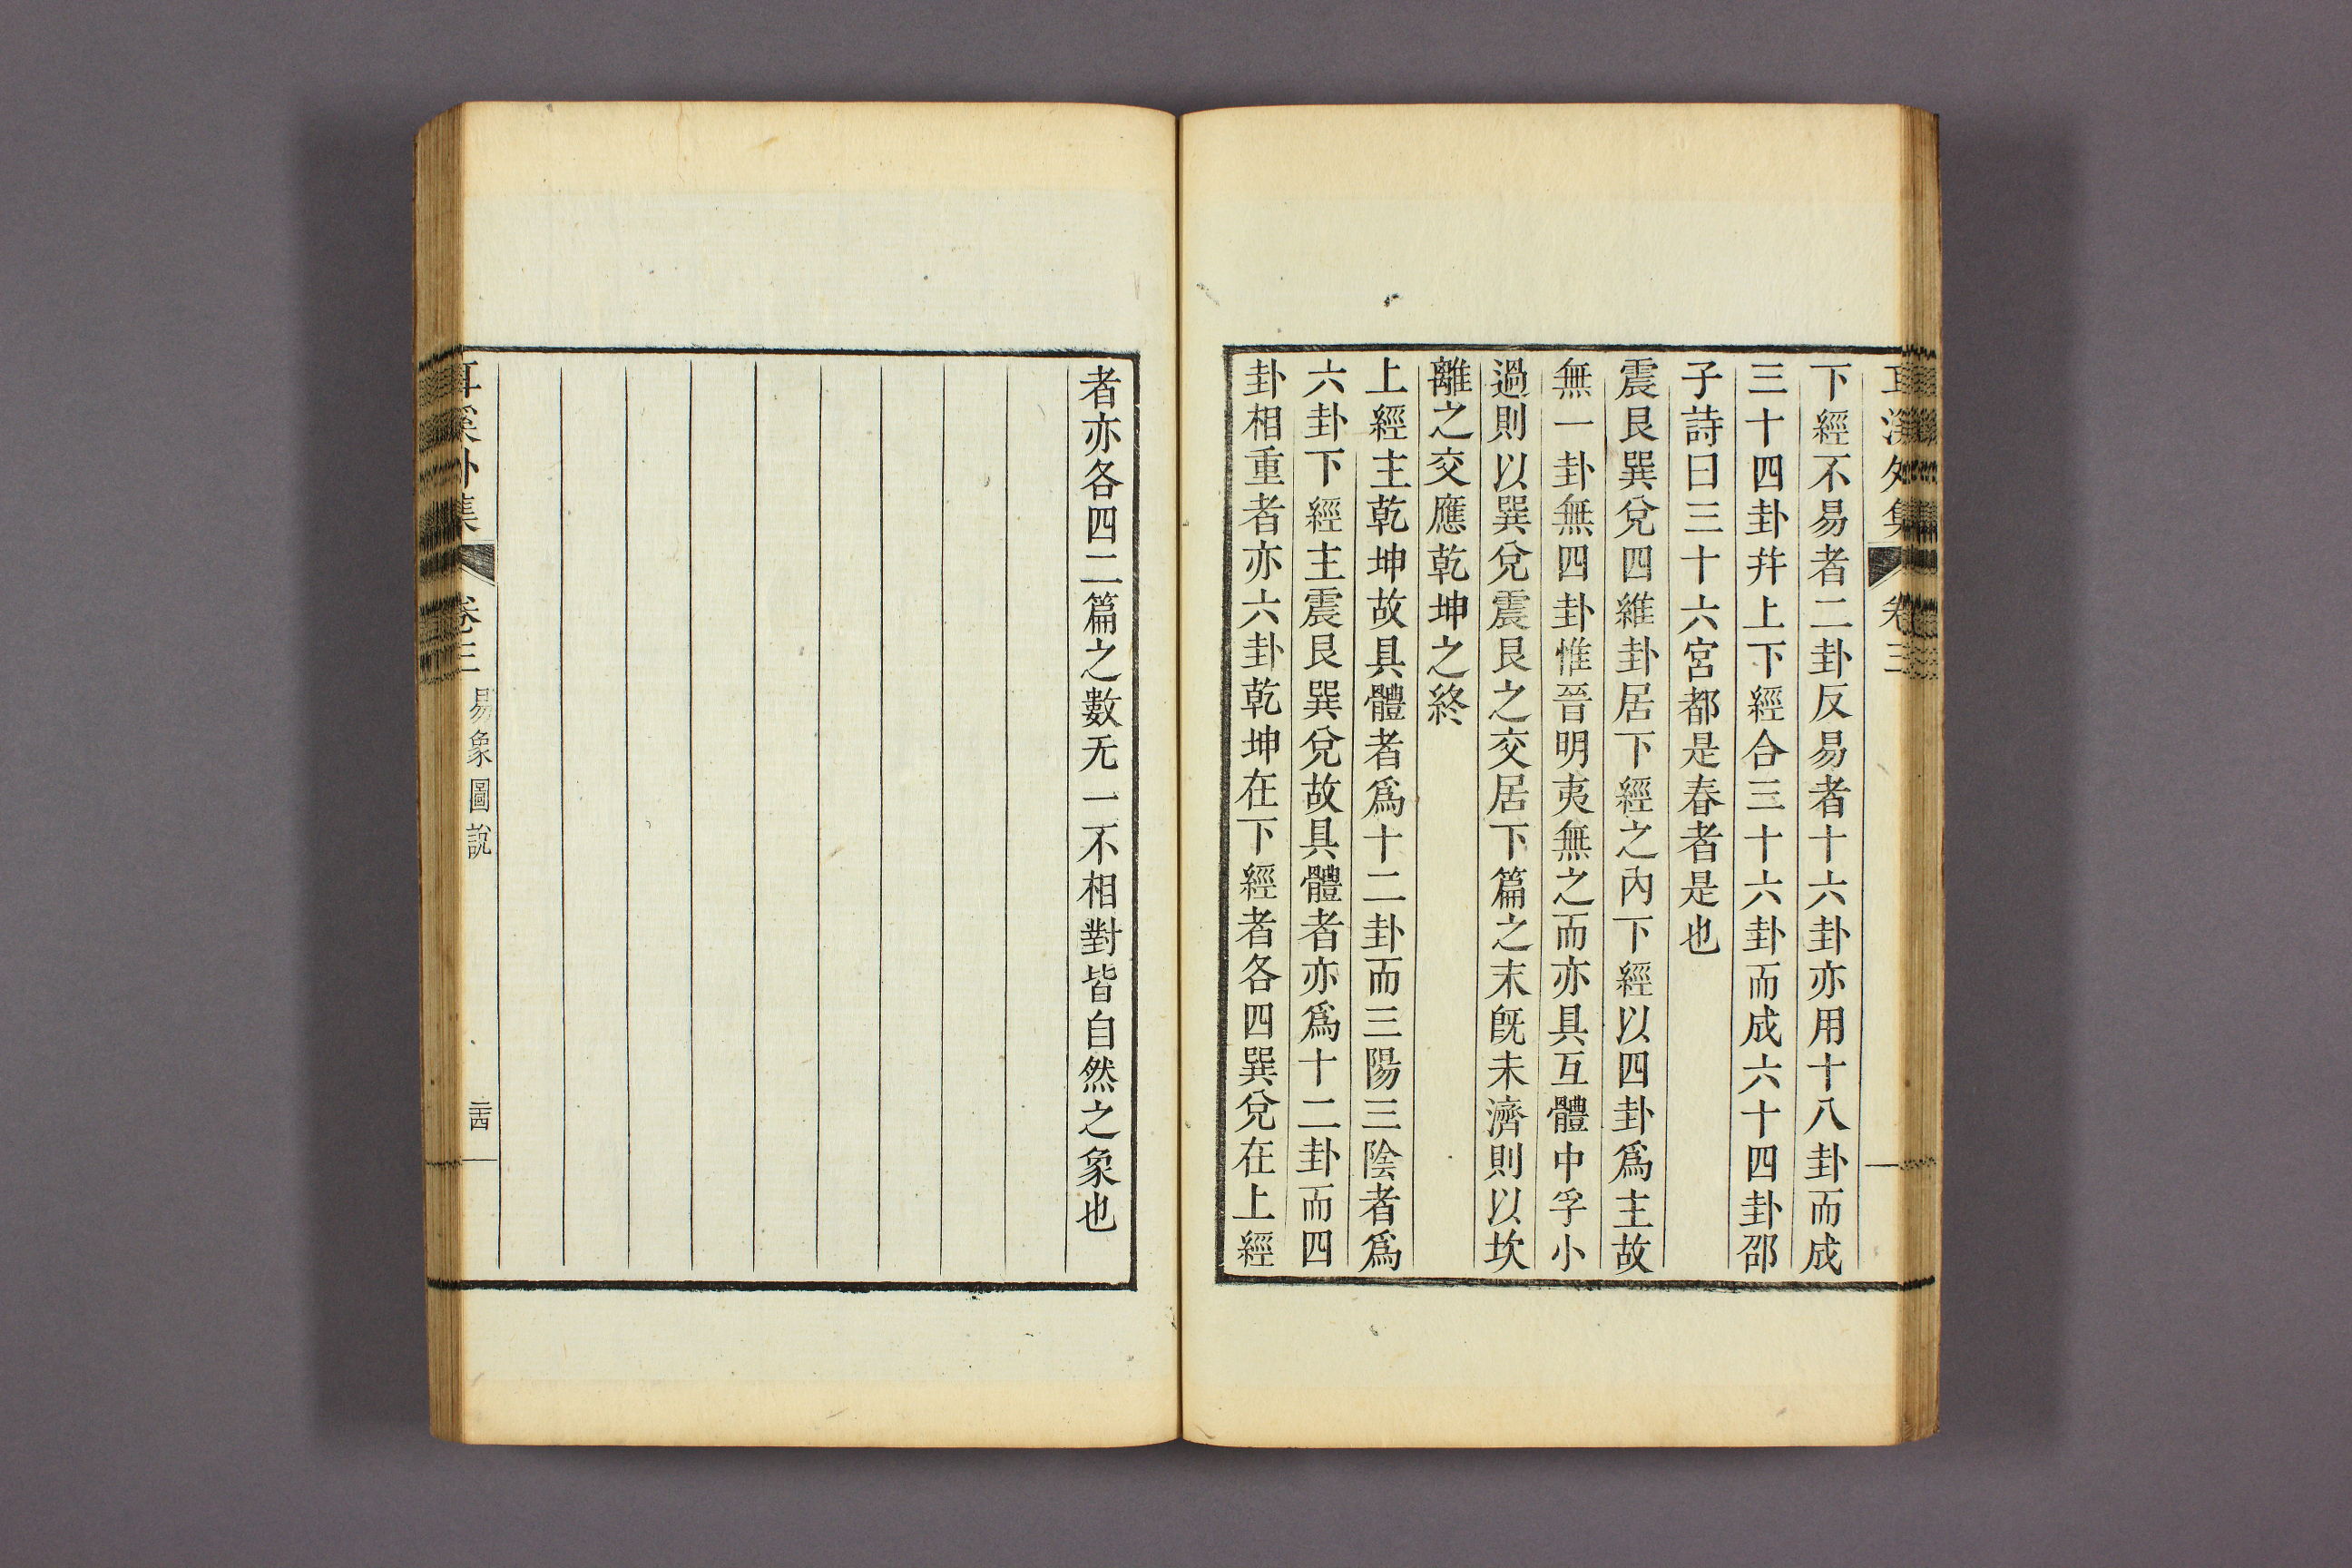 耳溪外集 卷三
下經不易者二卦反易者十六卦亦用十八卦而成
三十四卦幷上下經合三十六卦而成六十四卦邵
子詩曰三十六宮都是春者是也
震艮巽兌四維卦居下經之內下經以四卦爲主故
無一卦無四卦惟晉明夷無之而亦具互體中孚小
過則以巽兌震艮之交居下篇之末旣未濟則以坎
離之交應乾坤之終
上經主乾坤故具體者爲十二卦而三陽三陰者爲
六卦下經主震艮巽兌故具體者亦爲十二卦而四
卦相重者亦六卦乾坤在下經者各四巽兌在上經
者亦各四二篇之數无一不相對皆自然之象也
耳溪外集 卷三 易象圖說